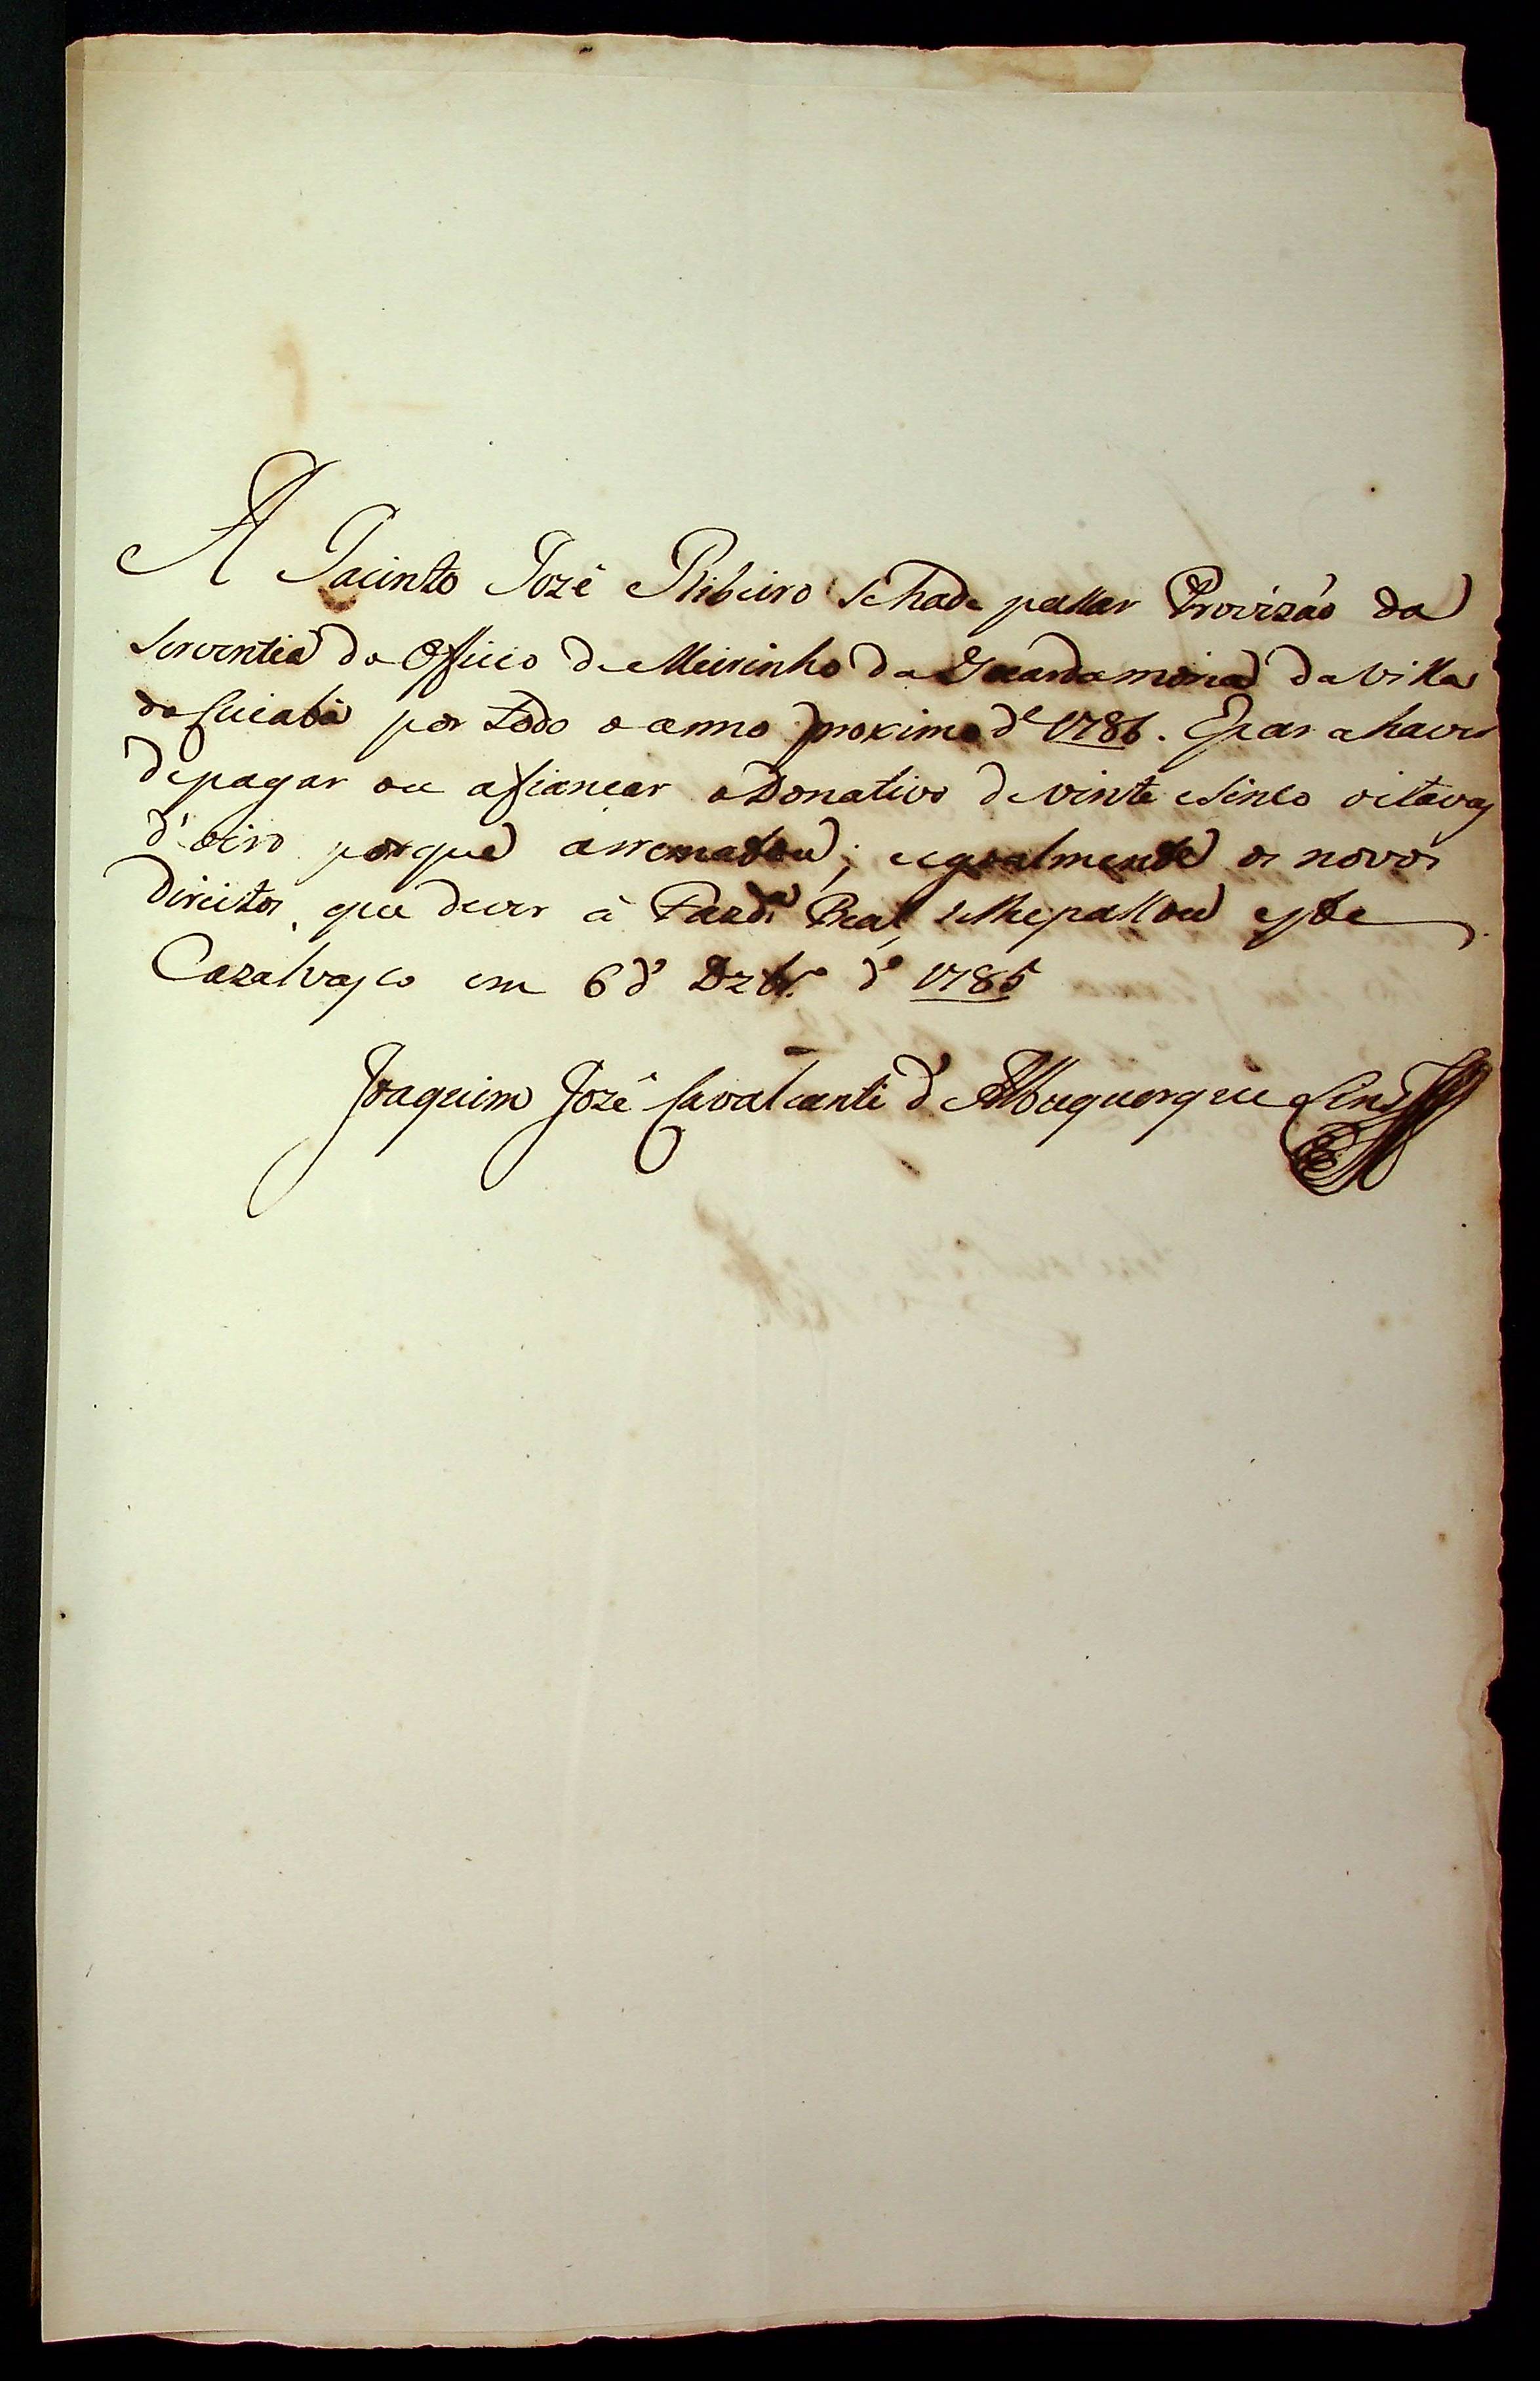 A Jacinto Jozé Ribeiro se hade passar Provizáo da
serventia do Officio de Meirinho da Guardamoria da Villa
do Cuiabá por todo o anno proximo d'1786. E para haver
de pagar ou afiançar o Donativo de vinte e sinco oitavas
d'oiro porque arrematou; e egoalmente os novos
direitos, que dever á Fazd.ª Real, se lhe passou este
Cazalvasco em 6 d' Dzbr.º d' 1785
Joaquim Jozé Cavalcanti d' Albuquerque Lins